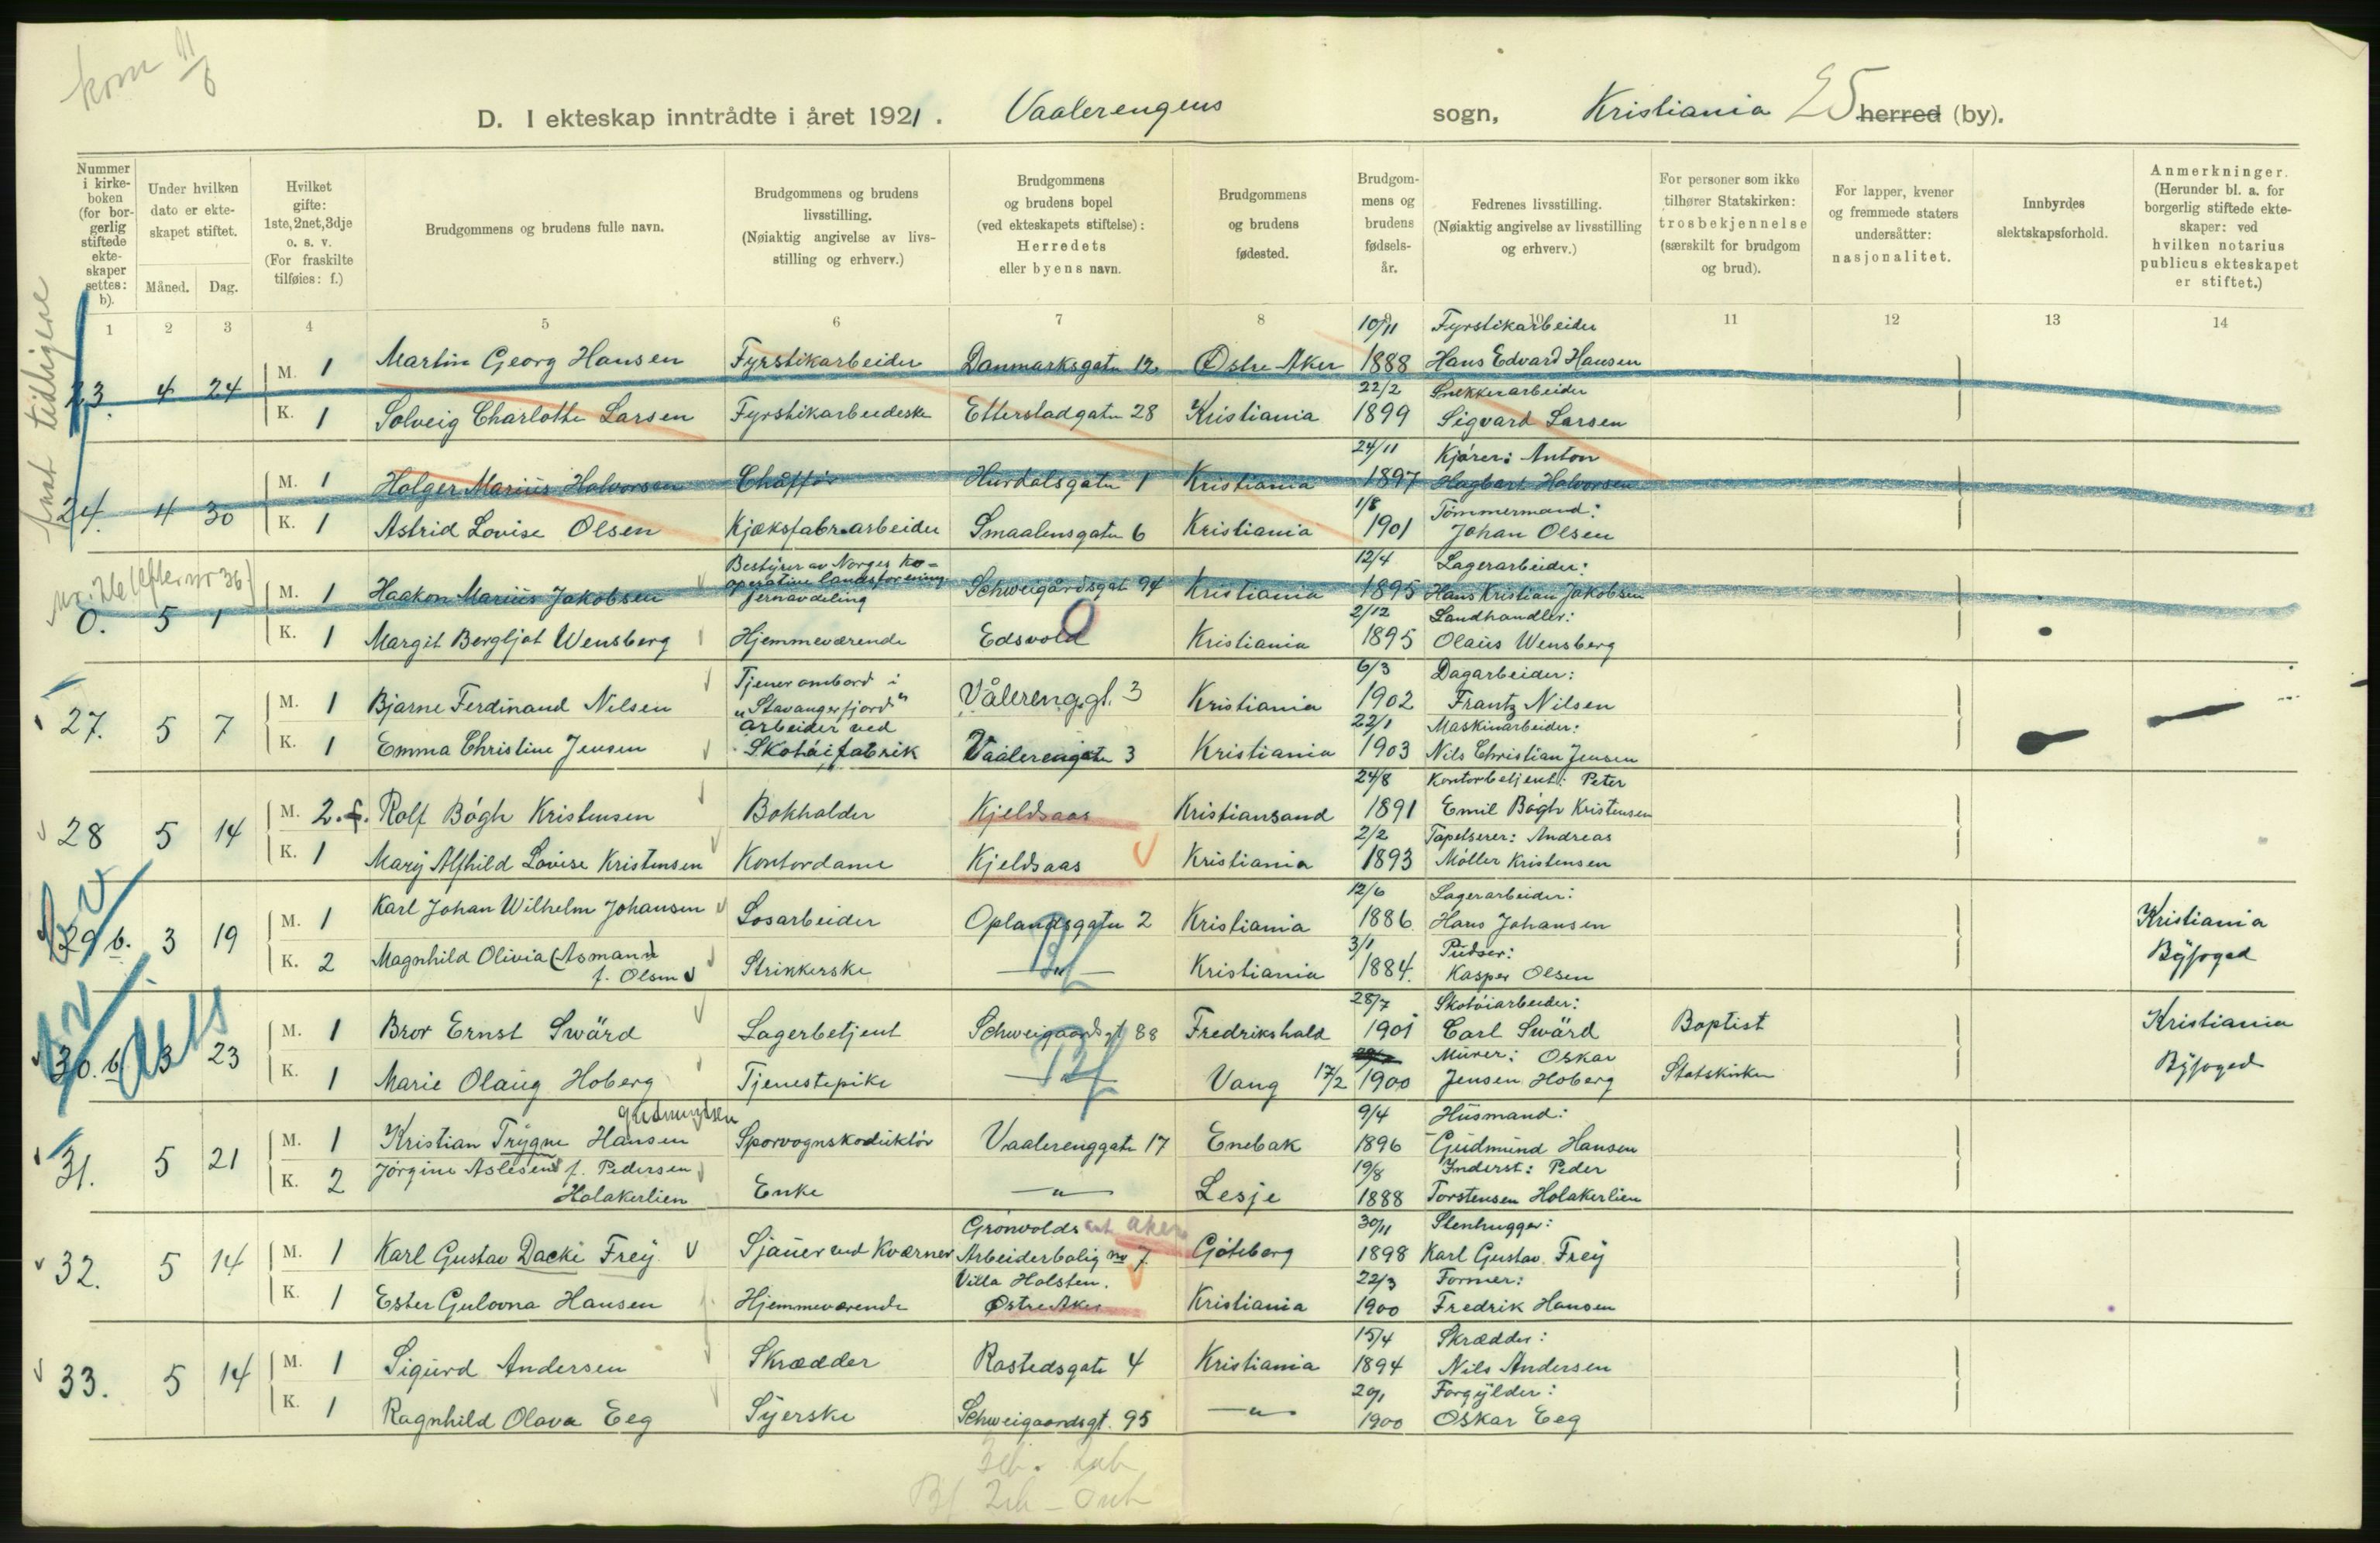 kom 11/6
D. I ekteskap inntrådte i året 1921. Vaalerengens sogn, Kristiania 25 herred (by).
Nummer i kirke-boken (for bor-gerlig stiftede ekte-skaper settes: b).
Under hvilken dato er ekte-skapet stiftet.
Måned. Dag.
Hvilket gifte: 1ste, 2net, 3dje o. s. v. (For fraskilte tilføies: f.)
Brudgommens og brudens fulle navn.
Brudgommens og brudens livsstilling. (Nøiaktig angivelse av livs-stilling og erhverv.)
Brudgommens og brudens bopel (ved ekteskapets stiftelse): Herredets eller byens navn.
Brudgommens og brudens fødested.
Brudgom-mens og brudens fødsels-år.
Fedrenes livsstilling. (Nøiaktig angivelse av livsstilling og erhverv.)
For personer som ikke tilhører Statskirken: trosbekjennelse (særskilt for brudgom og brud).
For lapper, kvener og fremmede staters undersåtter: nasjonalitet.
Innbyrdes slektskapsforhold.
Anmerkninger. (Herunder bl. a. for borgerlig stiftede ekte-skaper: ved hvilken notarius publicus ekteskapet er stiftet.)
1 2 3 4 5 6 7 8 9 10 11 12 13 14
tidligere
10/11 Fyrstikarbeider
23. 4 24 M. 1 Martin Georg Hansen Fyrstikarbeider Danmarksgatn 12. Østre Aker 1888 Hans Edvard Hansen
22/2 Snekkerarbeider
K. 1 Solveig Charlotte Larsen Fyrstikarbeideske Etterstadgatn 28 Kristiania 1899 Sigvard Larsen
24/11 Kjører: Anton
24. 4 30 M. 1 Holger Marius Halvorsen Chaffør Hurdalsgatn 1 Kristiania 1897 Hagbart Halvorsen
1/8 Tømmermand:
K. 1 Astrid Lovise Olsen Kjæksfabr.arbeider Smaalensgatn 6 Kristiania 1901 Johan Olsen
nr. 26 (efter nr 36)
Bestyrer av Norges ko-
12/4 Lagerarbeider:
operative landsforening
0. 5 1 M. 1 Haakon Marius Jakobsen jernavdeling Schweigårdsgat 94 Kristiania 1895 Hans Kristian Jakobsen
2/12 Landhandler:
K. 1 Margit Bergljot Wensberg Hjemmeværende Edsvold Kristiania 1895 Olaus Wensberg
Tjener ombord i 6/3 Dagarbeider:
27. 5 7 M. 1 Bjarne Ferdinand Nilsen "Stavangerfjord" Vålerenggt. 3 Kristiania 1902 Frantz Nilsen
Arbeider ved 22/1 Maskinarbeider:
K. 1 Emma Christine Jensen Skotøifabrik Vaalerengatn 3 Kristiania 1903 Nils Christian Jensen
24/8 Kontorbetjent: Peter
28 5 14 M. 2.f. Rolf Bøgh Kristensen Bokholder Kjeldsaas Kristiansand 1891 Emil Bøgh Kristensen
2/2 Tapetserer: Andreas
K. 1 Mary Alfhild Lovise Kristensen Kontordame Kjeldsaas Kristiania 1893 Møller Kristensen
12/6 Lagerarbeider:
29 b. 3 19 M. 1 Karl Johan Wilhelm Johansen Løsarbeider Oplandsgatn 2 Kristiania 1886 Hans Johansen Kristiania
3/1 Pudser:
K. 2 Magnhild Olivia (Asmann f. Olsen Strikkerske — " — Kristiania 1884. Kasper Olsen Byfoged
28/7 Skotøiarbeider:
30. b. 3 23 M. 1 Bror Ernst Swärd Lagerbetjent Schweigaardsgt 88 Fredrikshald 1901 Carl Swärd Baptist Kristiania
Murer: Oskar
K. 1 Marie Olaug Hoberg Tjenestepike Vang 17/2 1900 Jensen Hoberg Statskirken Byfoged
Gudmundsen 9/4 Husmand:
31. 5 21 M. 1 Kristian Trygve Hansen Sporvognskonduktør Vaalerenggatn 17 Enebak 1896 Gudmund Hansen
19/8 Inderst: Peder
K. 2 Jørgine Aslesen f. Pedersen Holakerlien Enke — " — Lesje 1888 Torstensen Holakerlien
Grønvolds Aker 30/11 Stenhugger:
32. 5 14 M. 1 Karl Gustav Dacki Frey Sjauer ved Kværner Arbeiderbolig no 7. Göteborg 1898 Karl Gustav Frey
Villa Holsten. 22/3 Former:
K. 1 Ester Gulovna Hansen Hjemmeværende Østre Aker Kristiania 1900 Fredrik Hansen
15/4 Skrædder:
33. 5 14 M. 1 Sigurd Andersen Skrædder Rostedsgatn 4 Kristiania 1894 Nils Andersen
Forgylder:
K. 1 Ragnhild Olava Eeg Syerske Schweigaardsgt. 95 — " — 1900 Oskar Eeg